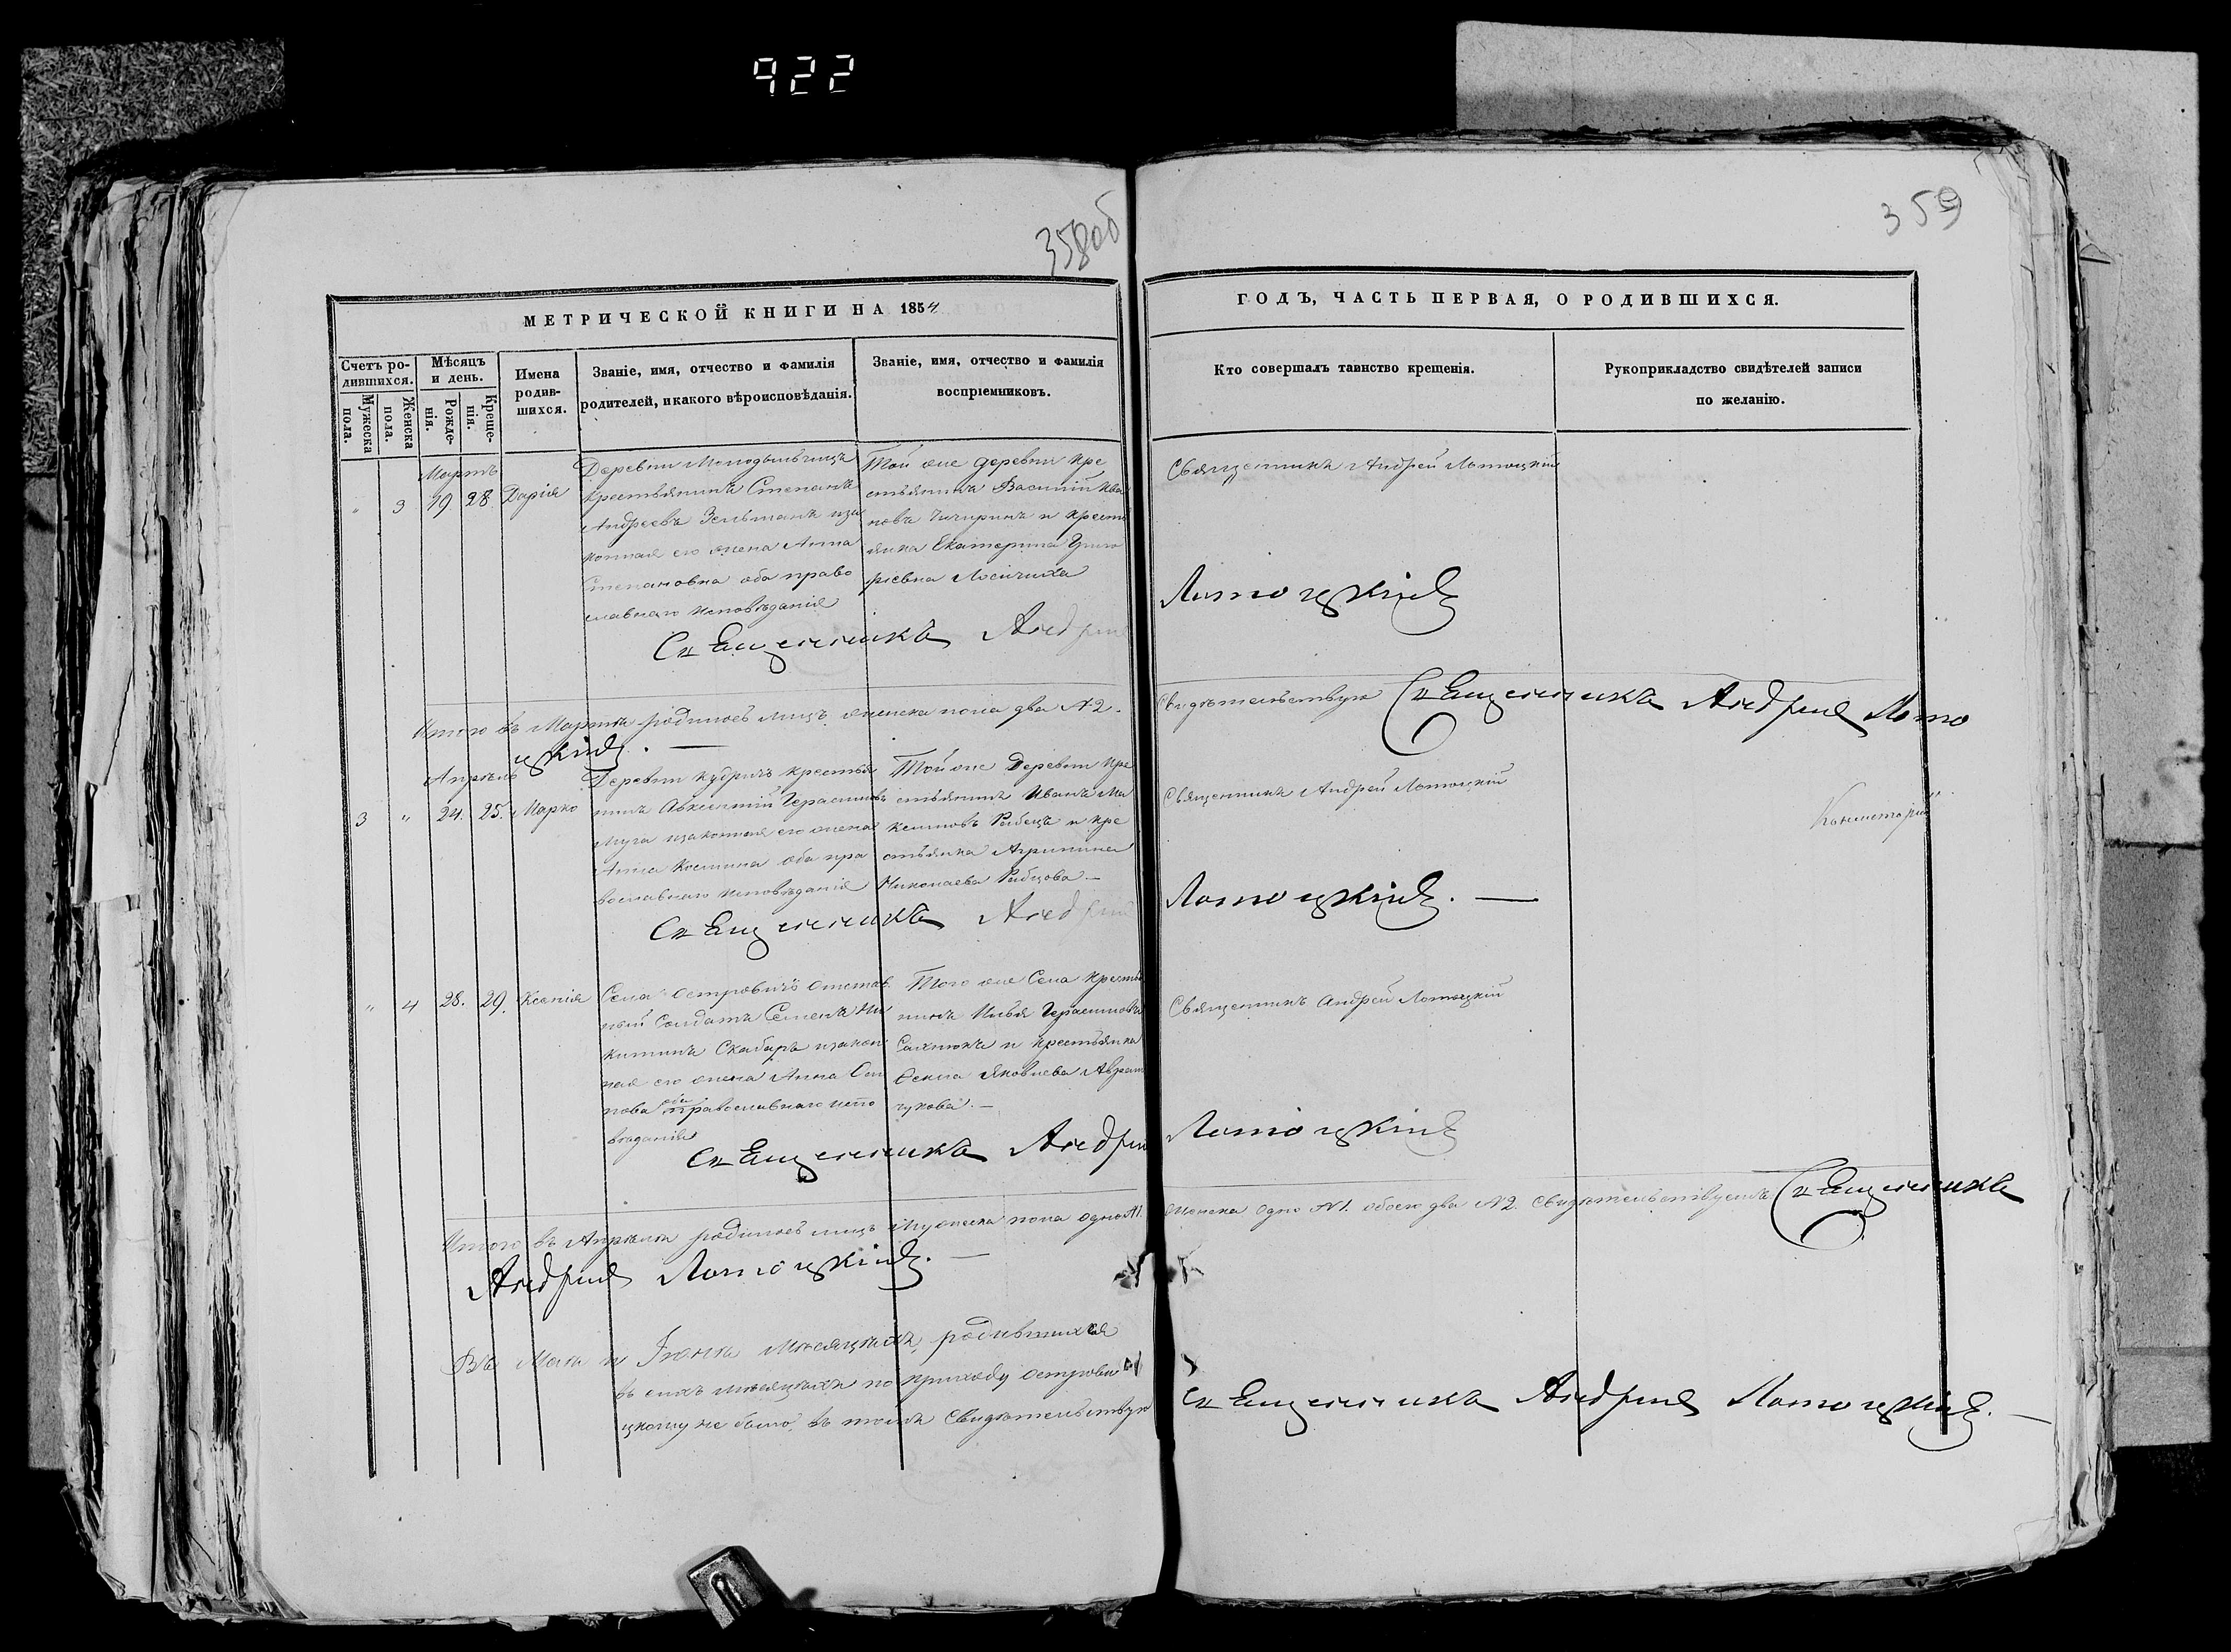 922
358об
359
МЕТРИЧЕСКОЙ КНИГИ НА 1854
ГОДЪ, ЧАСТЬ ПЕРВАЯ, О РОДИВШИХСЯ.
Счетъ ро-
дившихся.
Мужеска
пола.
Женска
пола.
Мѣсяцъ
и день.
Рожде-
нія.
Креще-
нія.
Имена
родив-
шихся.
Званіе, имя, отчество и фамилія
родителей, и какого вѣроисповѣданія.
Званіе, имя, отчество и фамилія
воспріемниковъ.
Кто совершалъ таинство крещенія.
Рукоприкладство свидѣтелей записи
по желанію.
Мартъ
" 3 19. 28. Дарія
Деревни
крестьянинъ Степанъ
Андреевъ
конная его жена Анна
Степановна оба право
славнаго исповѣданія
Той же деревни кре
стьянинъ Василій Ива
новъ и кресть
янка Екатерина Григо
ріевна
Священникъ Андрей Лотоцкій
Священникъ Андрей
Лотоцкій
Итого въ Мартѣ родилось лицъ женска пола два №2.
Свидѣтельствую Священникъ Андрей Лото
цкій. —
Апрѣль
3 " 24. 25. Марко
Деревни Кудричъ крестья
нинъ Авксентій Герасимовъ
изаконная его жена
Анна Космина оба пра
вославнаго исповѣданія
Той же Деревни кре
стьянинъ Иванъ Ма
ксимовъ Рабецъ и кре
стьянка Агрипина
Николаева Рабцова —
Священникъ Андрей Лотоцкій
Священникъ Андрей
Лотоцкій. —
" 4 28. 29. Ксенія
Села Островичъ отстав
ный Солдатъ Семенъ Ни
китинъ Скабаръ изакон
ная его жена Анна
нова оба православнаго испо
вѣданія
Того же Села крестья
нинъ Илья Герасимовъ
и крестьянка
Яковлева
чукова. —
Священникъ Андрей Лотоцкій
Священникъ Андрей
Лотоцкій
Итого въ Апрѣлѣ родилось лицъ Мужеска пола одно №1.
женска одно №1. обоего два №2. Свидѣтельствуетъ Священникъ
Андрей Лотоцкій. —
Въ Маѣ и Іюнѣ Мѣсяцахъ, родившихся
въ сихъ мѣсяцахъ по приходу Острови
цкому не было, въ томъ Свидѣтельствую
Священникъ Андрей Лотоцкій. —